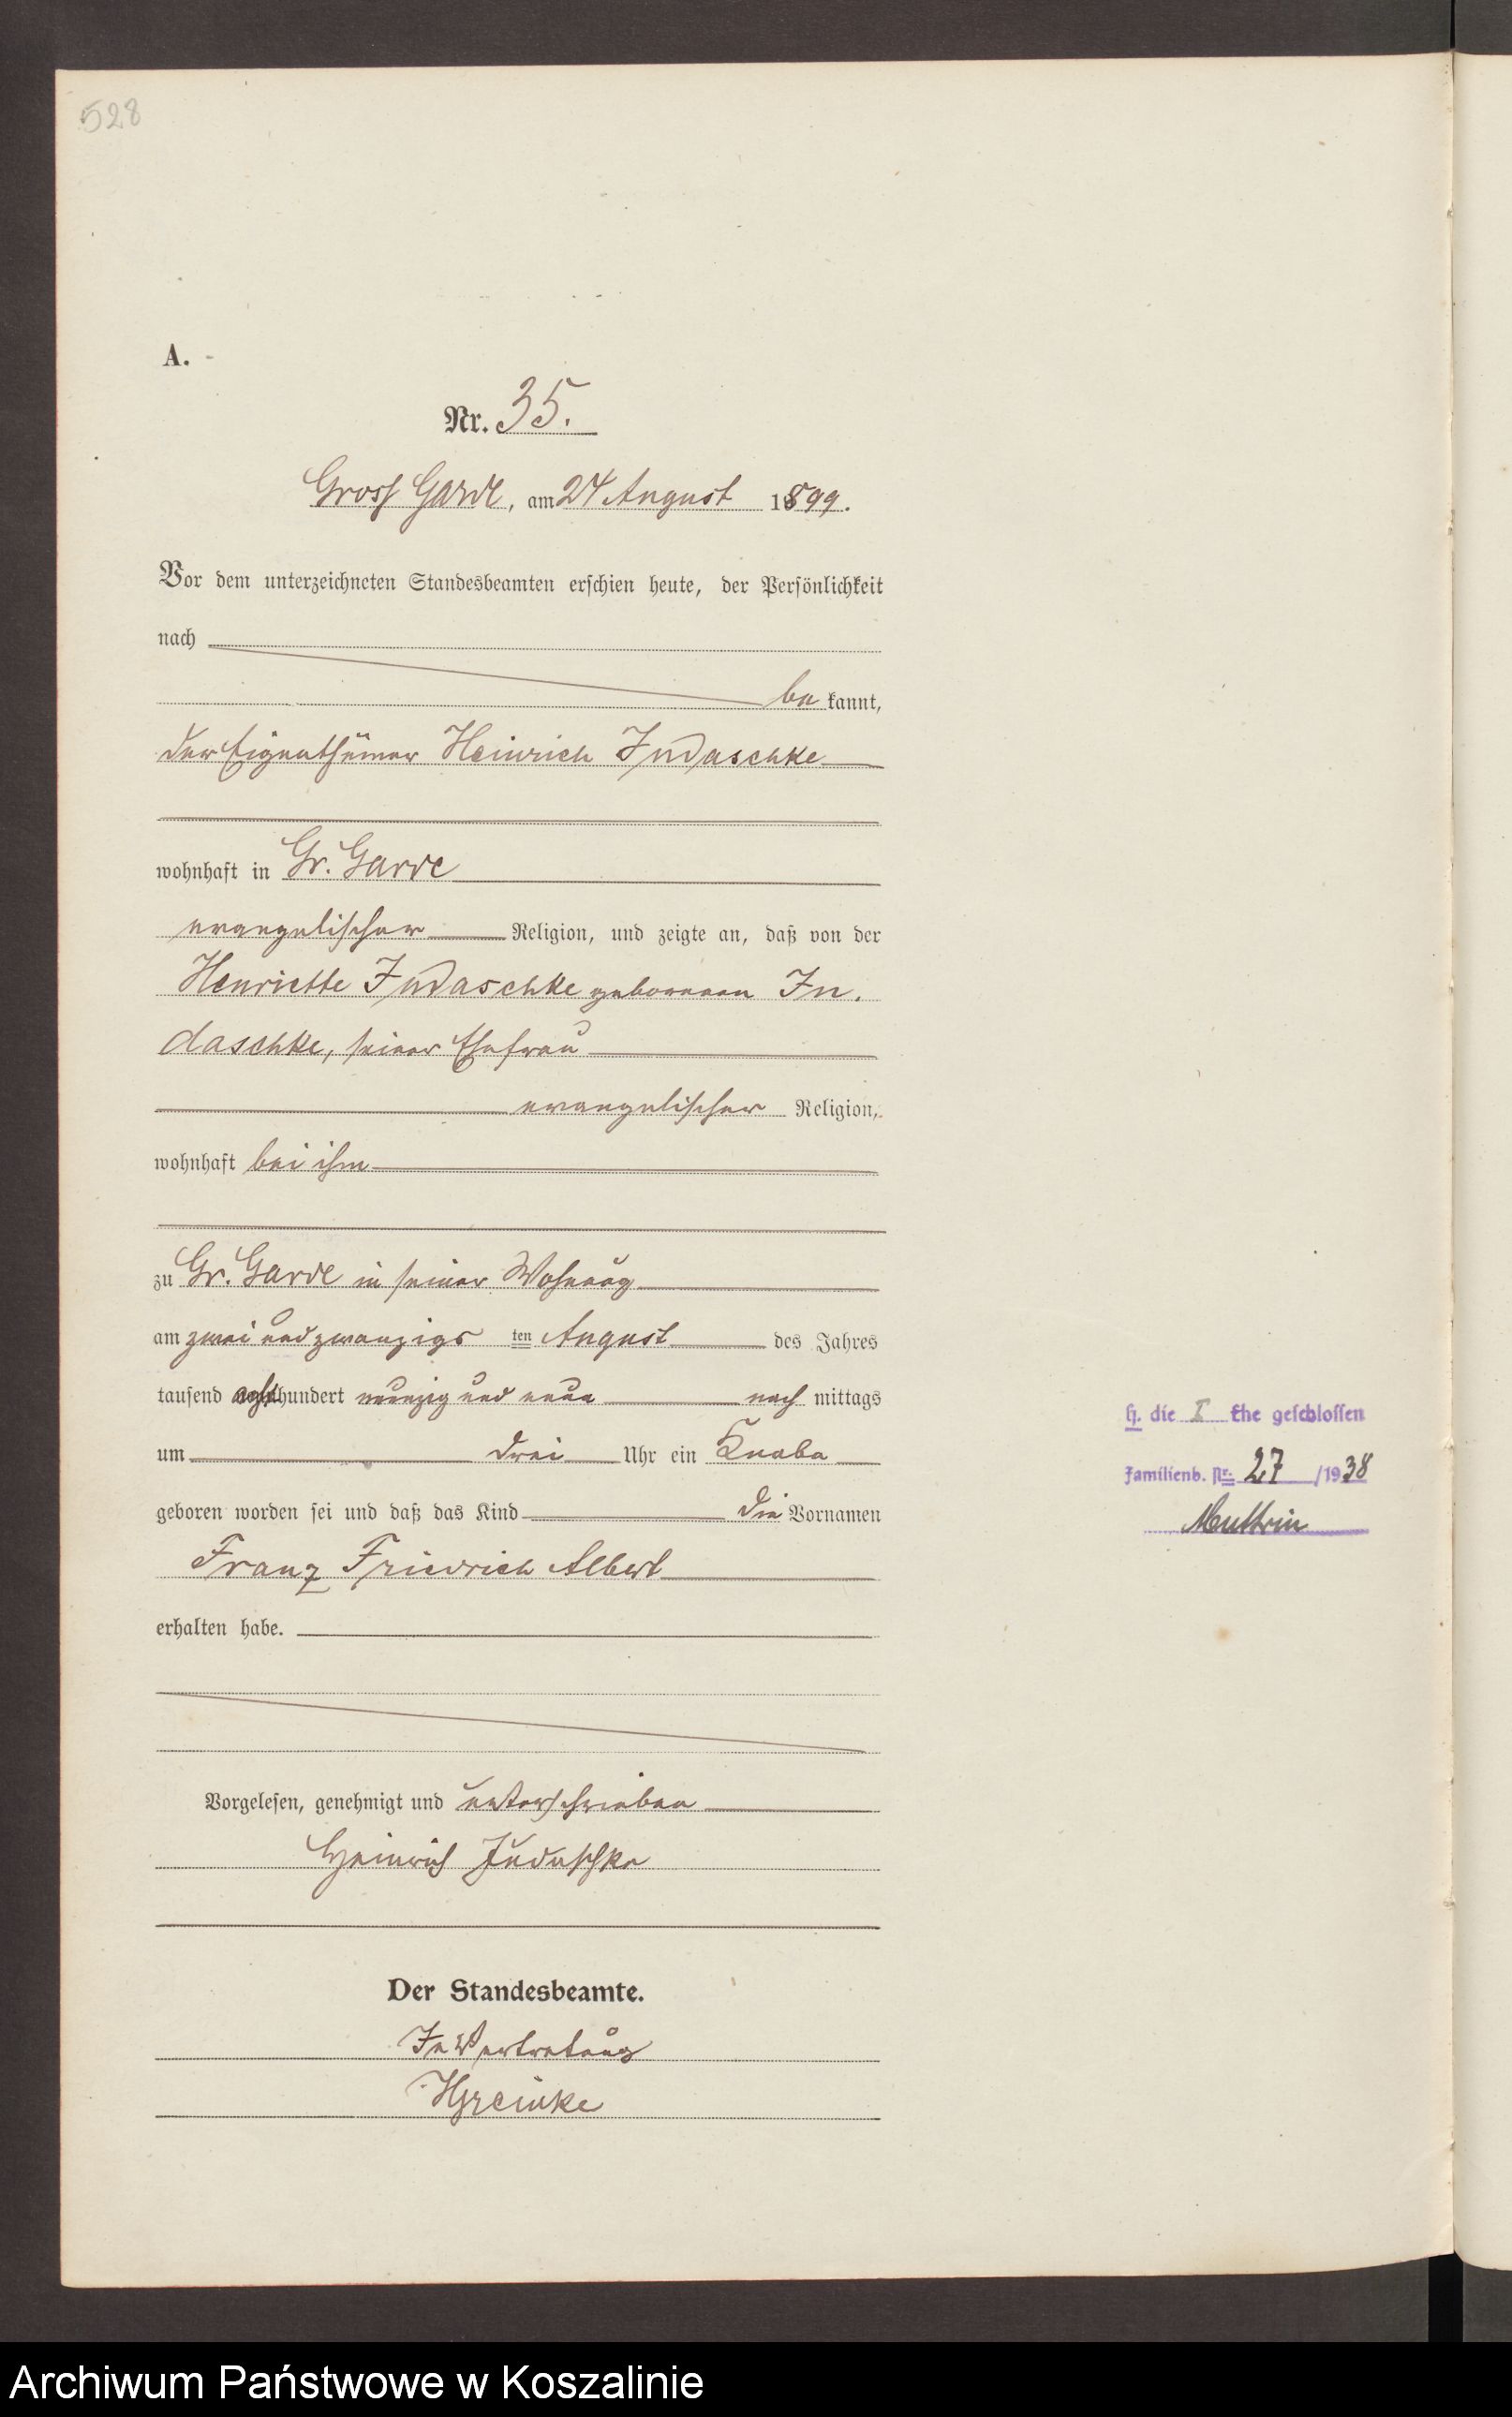 528
A.
Nr. 35.
Gross Garde, am 24 August 1899.
Vor dem unterzeichneten Standesbeamten erschien heute, der Persönlichkeit
nach
be kannt,
der Eigenthümer Heinrich Judaschke
wohnhaft in Gr. Garde
evangelischer Religion, und zeigte an, daß von der
Henriette Judaschke geborenen Ju.
daschke, seiner Ehefrau
evangelischer Religion,
wohnhaft bei ihm
zu Gr. Garde in seiner Wohnung
am zwei und zwanzigs ten August des Jahres
tausend acht hundert neunzig und neun nach mittags
um drei Uhr ein Knabe
geboren worden sei und daß das Kind die Vornamen
Franz Friedrich Albert
erhalten habe.
Vorgelesen, genehmigt und unterschrieben
Heinrich Judaschke
Der Standesbeamte.
In Vertretung
H. die I Ehe geschlossen
Familienb. Nr. 27 /1938
Muttrin
Archiwum Państwowe w Koszalinie